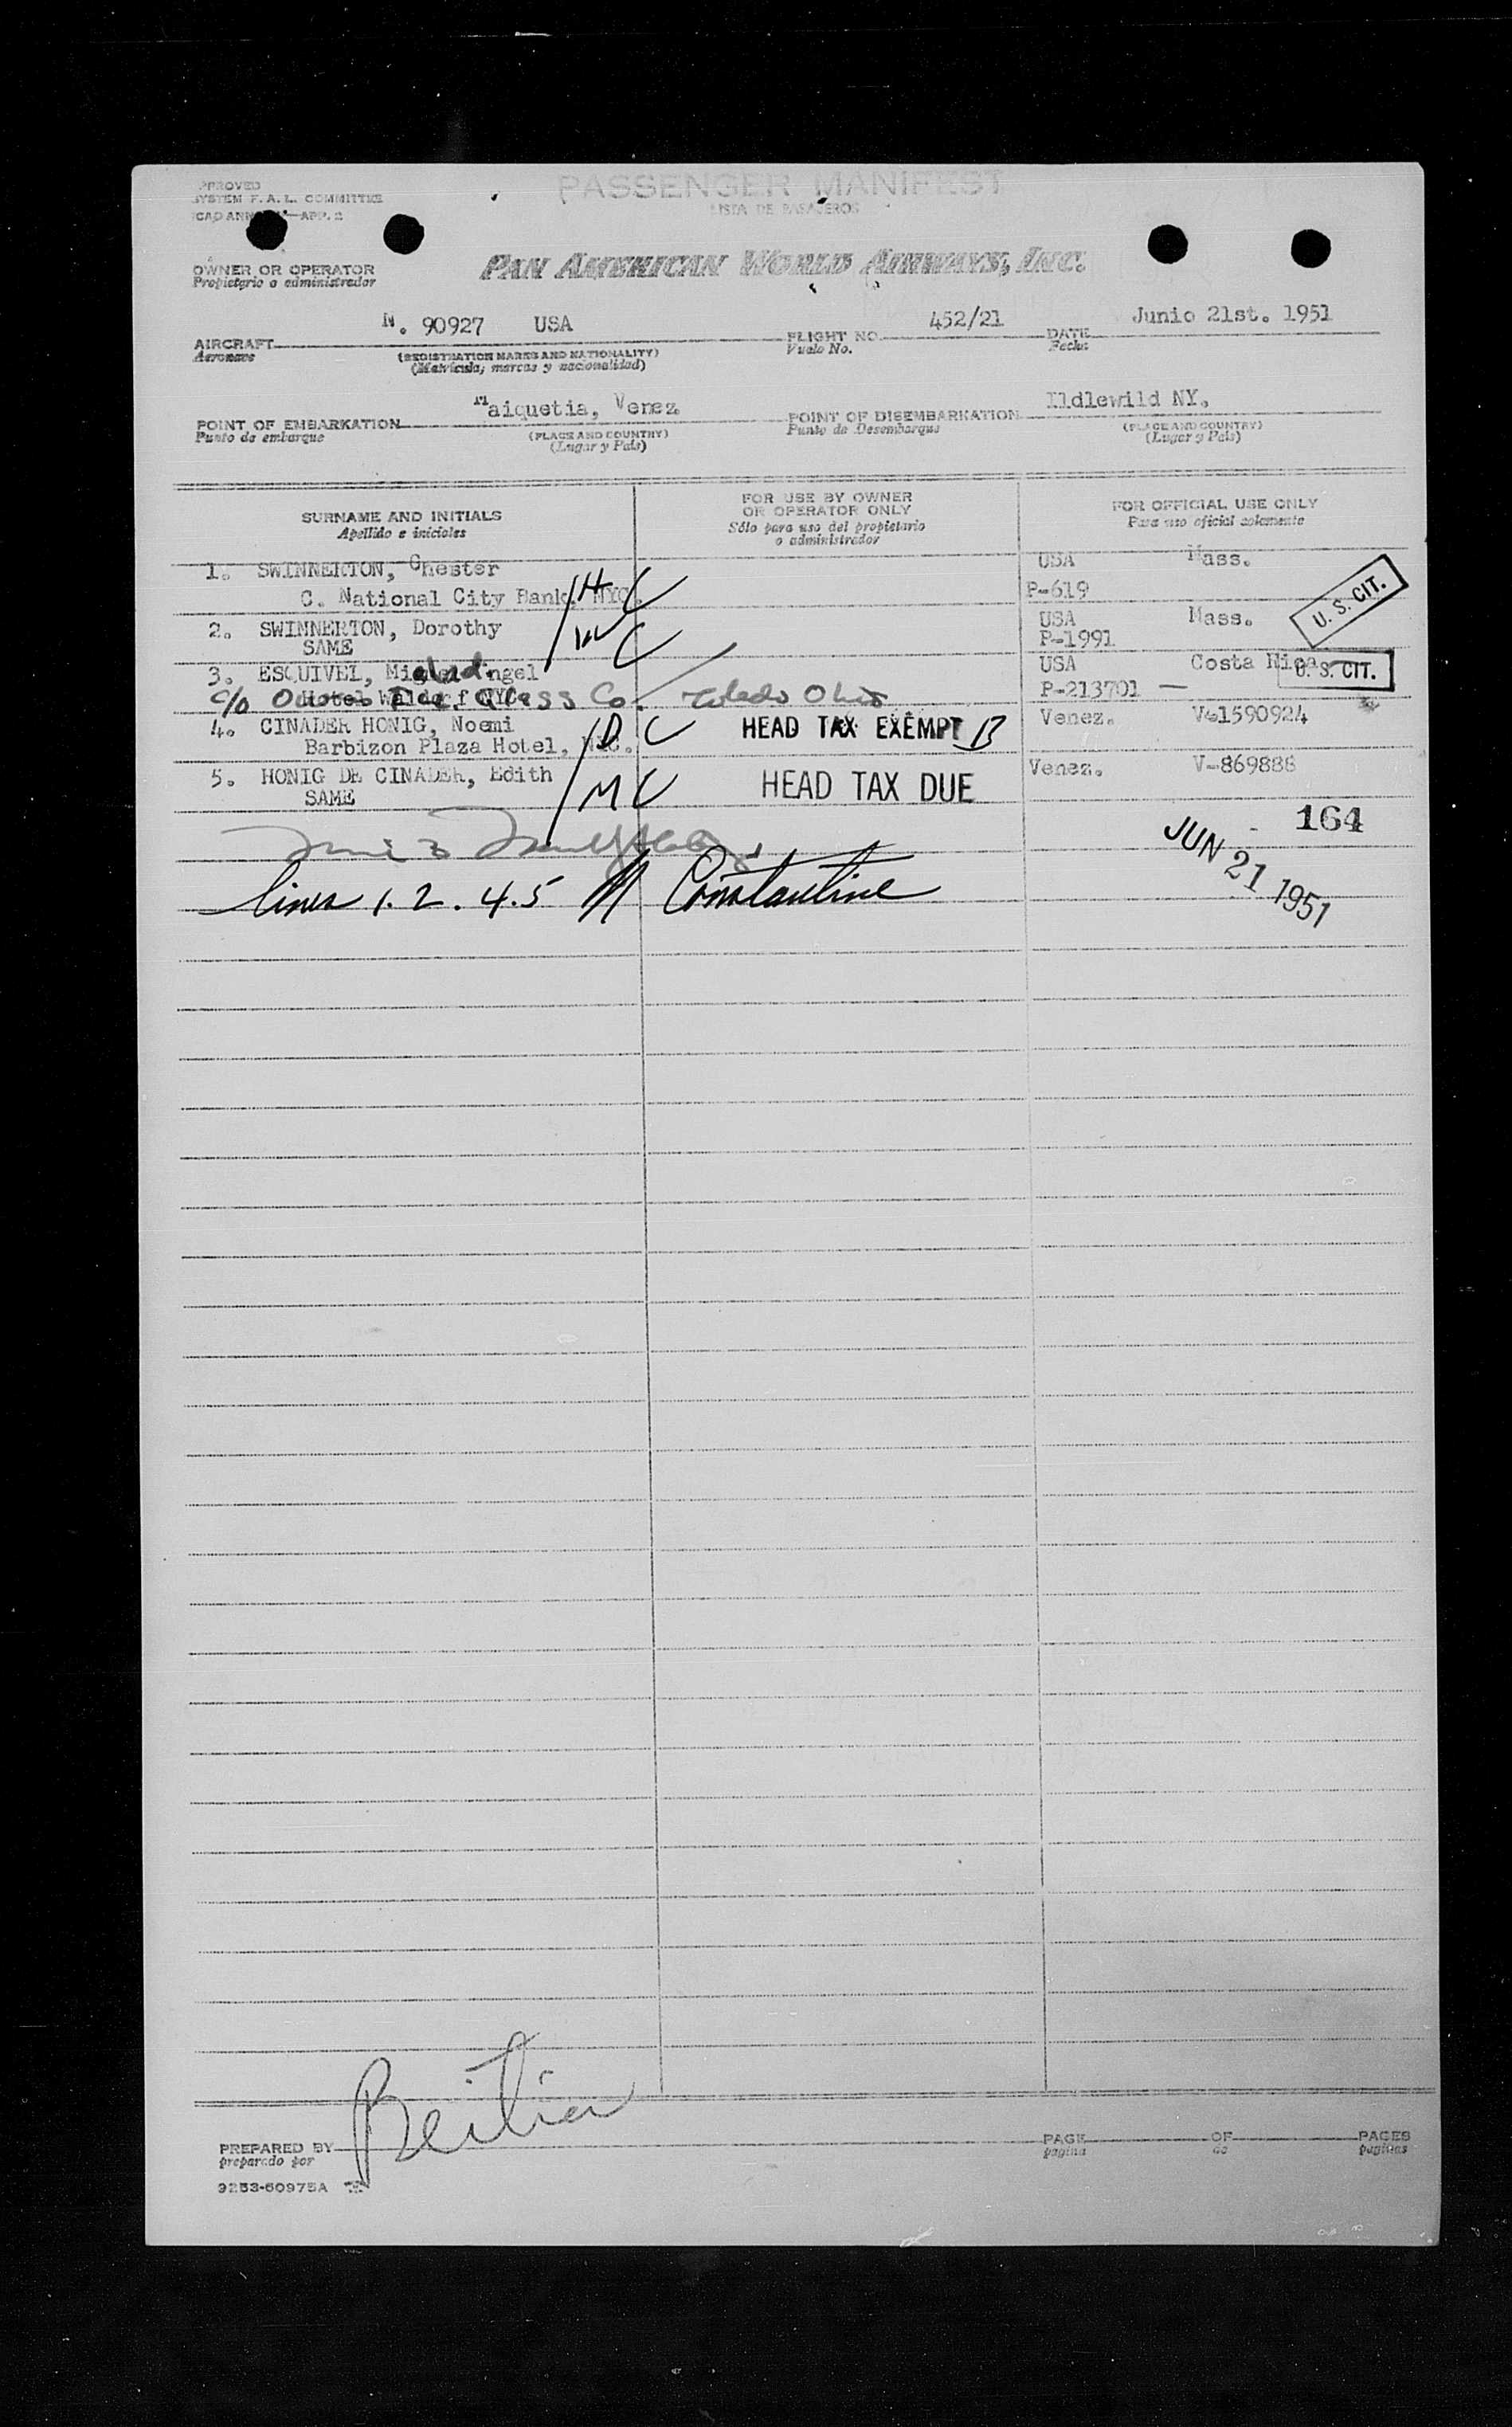 PPROVED
SYSTEM F. A. L. COMMITTEE
ICAO APP. 2
PASSENGER MANIFEST
LISTA DE PASAJEROS
OWNER OR OPERATOR
Propietario o administrador
PAN AMERICAN WORLD AIRWAYS, INC.
AIRCRAFT N. 90927 USA
Aeronave
(REGISTRATION MARKS AND NATIONALITY)
(Matrícula, marcas y nacionalidad)
FLIGHT NO. 452/21
Vuelo No.
DATE Junio 21st. 1951
Fecha
POINT OF EMBARKATION Maiquetia, Venez.
Punto de embarque
(PLACE AND COUNTRY)
(Lugar y País)
POINT OF DISEMBARKATION Ildlewild NY.
Punto de Desembarque
(PLACE AND COUNTRY)
(Lugar y País)
SURNAME AND INITIALS
Apellido e iniciales
FOR USE BY OWNER
OR OPERATOR ONLY
Sólo para uso del propietario
o administrador
FOR OFFICIAL USE ONLY
Para uso oficial solamente
1. SWINNERTON, Chester USA Mass.
C. National City Bank, NYC. H C P-619
U. S. CIT.
2. SWINNERTON, Dorothy USA Mass.
SAME C P-1991
3. ESQUIVEL, Angel USA Costa Rica
U. S. CIT.
c/o Glass Co. Toledo Ohio P-213701 —
Hotel Waldorf NYC.
4. CINADER HONIG, Noemi D C HEAD TAX EXEMPT B Venez. V-1590924
Barbizon Plaza Hotel, NYC.
5. HONIG DE CINADER, Edith M C HEAD TAX DUE Venez. V-869888
SAME
164
JUN 21 1951
lines 1. 2. 4. 5 M Constantine
Beitia
PREPARED BY
preparado por
PAGE OF PAGES
pagina de paginas
9253-60975A